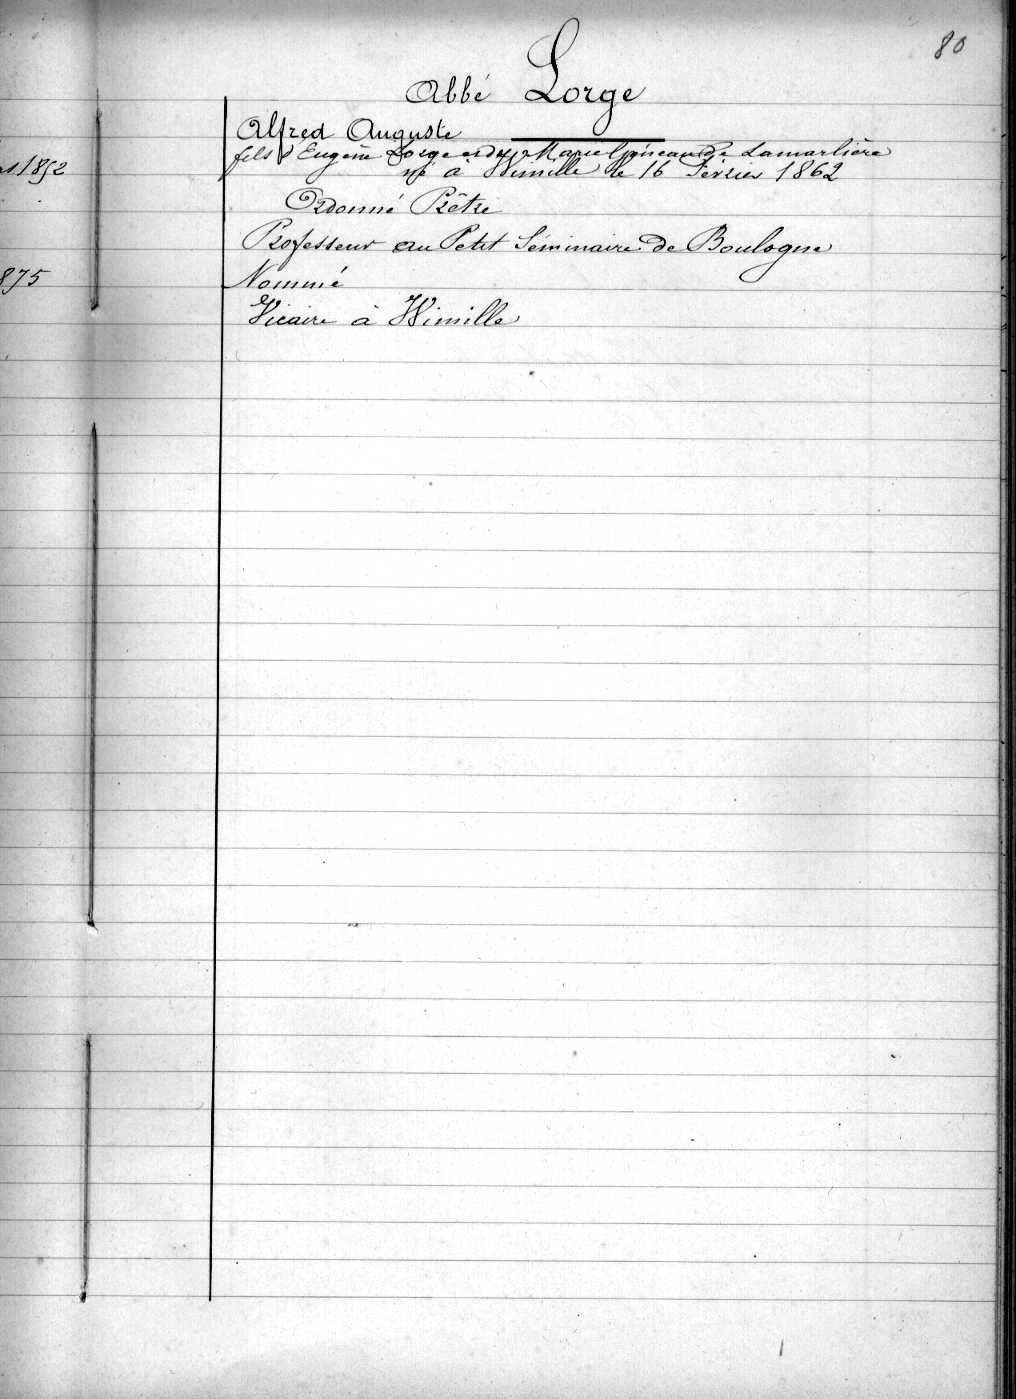 80
Abbé Lorge
Alfred Auguste
fils d'Eugène Lorge et de Marie Lamarlière
né à Wimille le 16 Février 1862
1852
Ordonné Prêtre
Professeur au Petit Séminaire de Boulogne
875
Nommé
Vicaire à Wimille